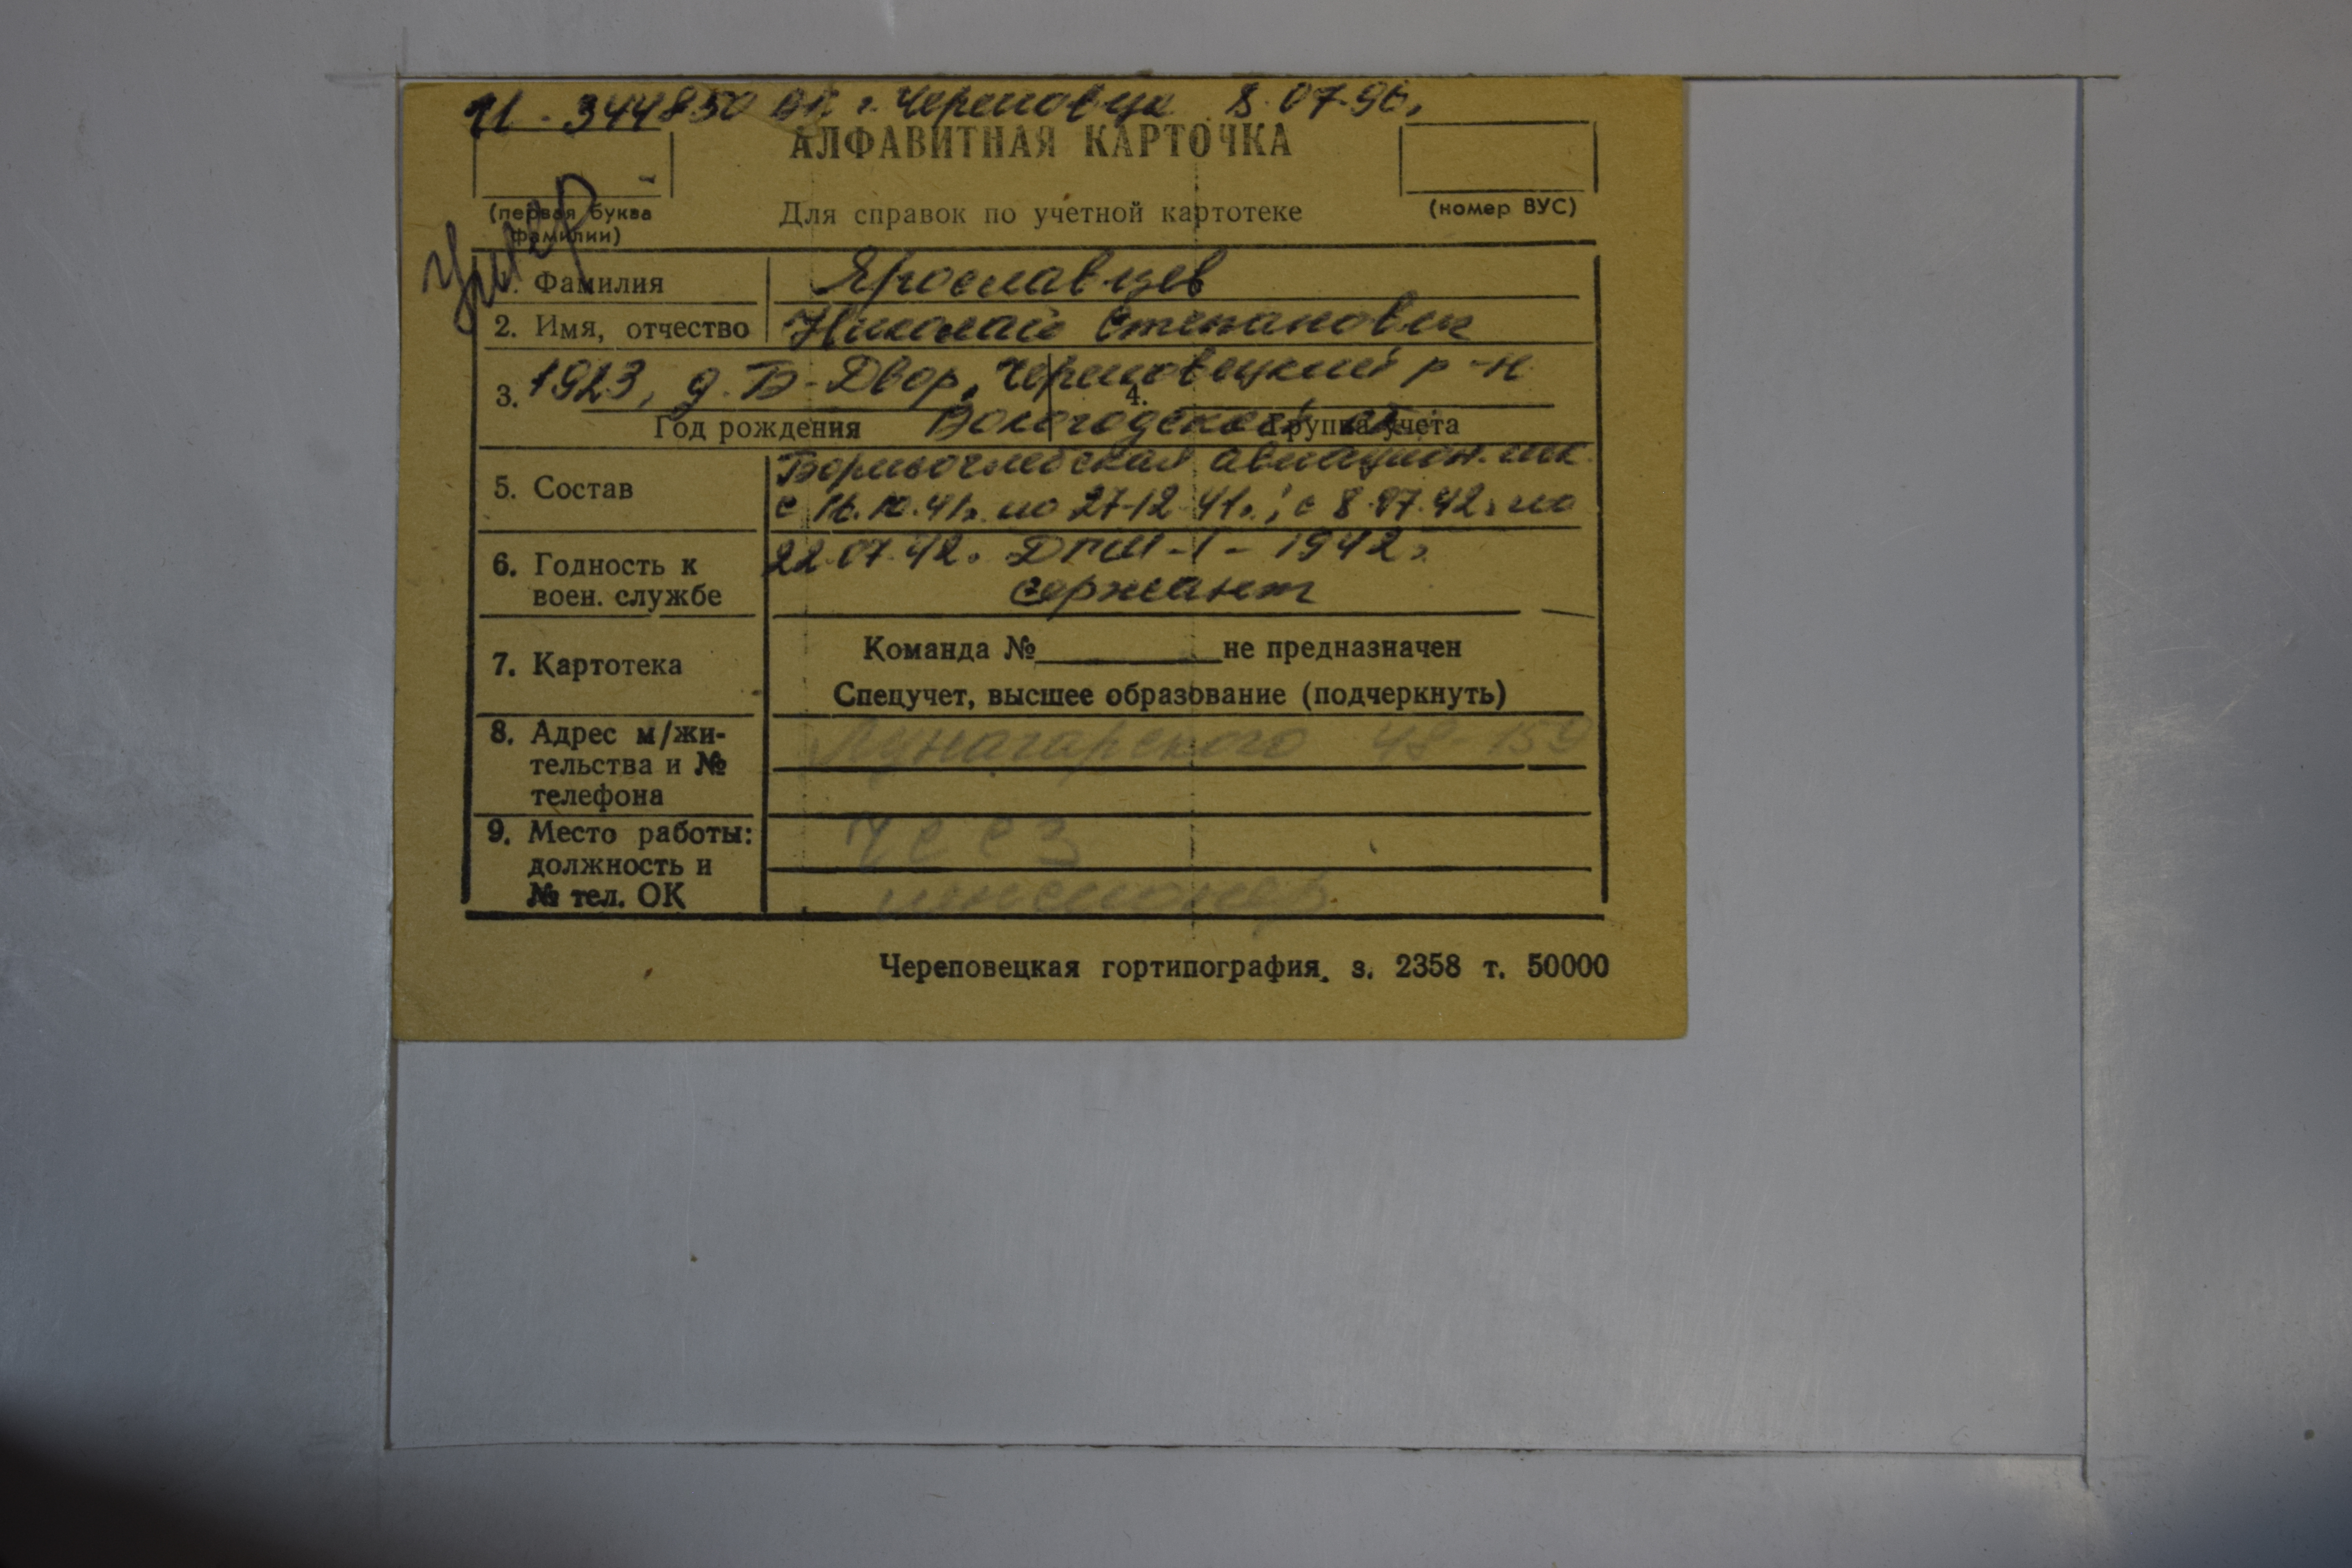 И - 344850 ВК г. Череповца 8.07.96г
АЛФАВИТНАЯ КАРТОЧКА
(первая буква фамилии)
Для справок по учетной картотеке
(номер ВУС)
умер
1. Фамилия Ярославцев
2. Имя, отчество Николай Степанович
3. 1923, д. Б-Двор, Череповецкий р-н
4.
Вологодской
Год рождения Группа учета
5. Состав Борисоглебская авиацион. шк.
с 16.10.41г. по 27.12.41г.; с 8.07.42г по
6. Годность к воен. службе 22.07.42г. 1942г
сержант
7. Картотека Команда № не предназначен
Спецучет, высшее образование (подчеркнуть)
8. Адрес м/жи-
тельства и №
телефона
Луначарского 48-159
9. Место работы:
должность и
№ тел. ОК
пенсионер
Череповецкая гортипография. з. 2358 т. 50000